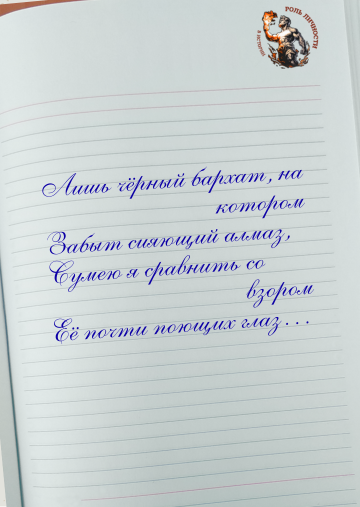 РОЛЬ ЛИЧНОСТИ
В ИСТОРИИ
Лишь чёрный бархат, на
котором
Забыт сияющий алмаз,
Сумею я сравнить со
взором
Её почти поющих глаз...